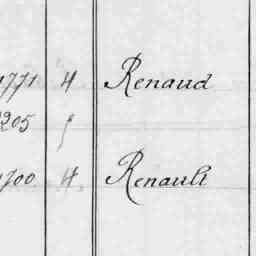 1771 4 Renaud
205 5
1700. 4. Renault